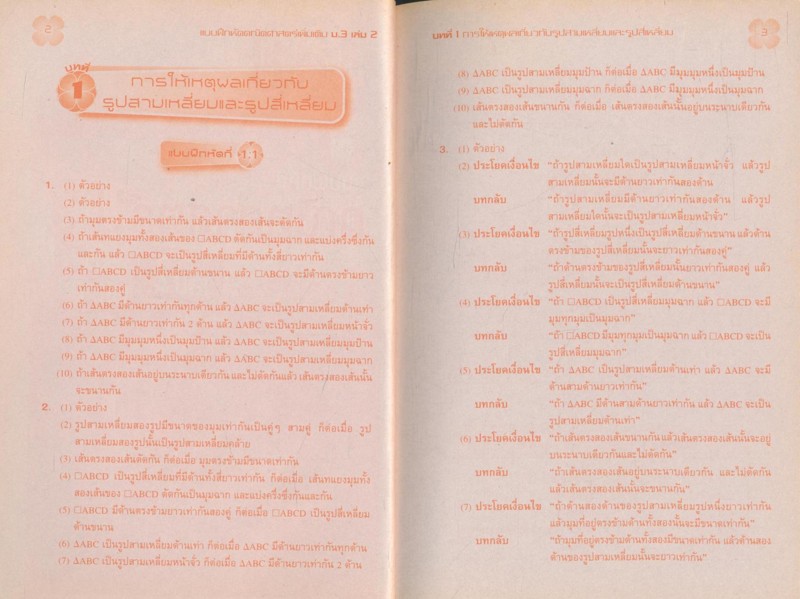 2
แบบฝึกหัดคณิตศาสตร์เพิ่มเติม ม.3 เล่ม 2
บทที่
1
การให้เหตุผลเกี่ยวกับ
รูปสามเหลี่ยมและรูปสี่เหลี่ยม
แบบฝึกหัดที่ 1.1
1. (1) ตัวอย่าง
(2) ตัวอย่าง
(3) ถ้ามุมตรงข้ามมีขนาดเท่ากัน แล้วเส้นตรงสองเส้นจะตัดกัน
(4) ถ้าเส้นทแยงมุมทั้งสองเส้นของ □ABCD ตัดกันเป็นมุมฉาก และแบ่งครึ่งซึ่งกัน
และกัน แล้ว □ABCD จะเป็นรูปสี่เหลี่ยมที่มีด้านทั้งสี่ยาวเท่ากัน
(5) ถ้า □ABCD เป็นรูปสี่เหลี่ยมด้านขนาน แล้ว □ABCD จะมีด้านตรงข้ามยาว
เท่ากันสองคู่
(6) ถ้า ΔABC มีด้านยาวเท่ากันทุกด้าน แล้ว ΔABC จะเป็นรูปสามเหลี่ยมด้านเท่า
(7) ถ้า ΔABC มีด้านยาวเท่ากัน 2 ด้าน แล้ว ΔABC จะเป็นรูปสามเหลี่ยมหน้าจั่ว
(8) ถ้า ΔABC มีมุมมุมหนึ่งเป็นมุมป้าน แล้ว ΔABC จะเป็นรูปสามเหลี่ยมมุมป้าน
(9) ถ้า ΔABC มีมุมมุมหนึ่งเป็นมุมฉาก แล้ว ΔABC จะเป็นรูปสามเหลี่ยมมุมฉาก
(10) ถ้าเส้นตรงสองเส้นอยู่บนระนาบเดียวกัน และไม่ตัดกันแล้ว เส้นตรงสองเส้นนั้น
จะขนานกัน
2. (1) ตัวอย่าง
(2) รูปสามเหลี่ยมสองรูปมีขนาดของมุมเท่ากันเป็นคู่ๆ สามคู่ ก็ต่อเมื่อ รูป
สามเหลี่ยมสองรูปนั้นเป็นรูปสามเหลี่ยมคล้าย
(3) เส้นตรงสองเส้นตัดกัน ก็ต่อเมื่อ มุมตรงข้ามมีขนาดเท่ากัน
(4) □ABCD เป็นรูปสี่เหลี่ยมที่มีด้านทั้งสี่ยาวเท่ากัน ก็ต่อเมื่อ เส้นทแยงมุมทั้ง
สองเส้นของ □ABCD ตัดกันเป็นมุมฉาก และแบ่งครึ่งซึ่งกันและกัน
(5) □ABCD มีด้านตรงข้ามยาวเท่ากันสองคู่ ก็ต่อเมื่อ □ABCD เป็นรูปสี่เหลี่ยม
ด้านขนาน
(6) ΔABC เป็นรูปสามเหลี่ยมด้านเท่า ก็ต่อเมื่อ ΔABC มีด้านยาวเท่ากันทุกด้าน
(7) ΔABC เป็นรูปสามเหลี่ยมหน้าจั่ว ก็ต่อเมื่อ ΔABC มีด้านยาวเท่ากัน 2 ด้าน
บทที่ 1 การให้เหตุผลเกี่ยวกับรูปสามเหลี่ยมและรูปสี่เหลี่ยม
3
(8) ΔABC เป็นรูปสามเหลี่ยมมุมป้าน ก็ต่อเมื่อ ΔABC มีมุมมุมหนึ่งเป็นมุมป้าน
(9) ΔABC เป็นรูปสามเหลี่ยมมุมฉาก ก็ต่อเมื่อ ΔABC มีมุมมุมหนึ่งเป็นมุมฉาก
(10) เส้นตรงสองเส้นขนานกัน ก็ต่อเมื่อ เส้นตรงสองเส้นนั้นอยู่บนระนาบเดียวกัน
และไม่ตัดกัน
3. (1) ตัวอย่าง
(2) ประโยคเงื่อนไข "ถ้ารูปสามเหลี่ยมใดเป็นรูปสามเหลี่ยมหน้าจั่ว แล้วรูป
สามเหลี่ยมนั้นจะมีด้านยาวเท่ากันสองด้าน
บทกลับ "ถ้ารูปสามเหลี่ยมมีด้านยาวเท่ากันสองด้าน แล้วรูป
สามเหลี่ยมใดนั้นจะเป็นรูปสามเหลี่ยมหน้าจั่ว"
(3) ประโยคเงื่อนไข "ถ้ารูปสี่เหลี่ยมรูปหนึ่งเป็นรูปสี่เหลี่ยมด้านขนาน แล้วด้าน
ตรงข้ามของรูปสี่เหลี่ยมนั้นจะยาวเท่ากันสองคู่"
บทกลับ "ถ้าด้านตรงข้ามของรูปสี่เหลี่ยมนั้นยาวเท่ากันสองคู่ แล้ว
รูปสี่เหลี่ยมนั้นจะเป็นรูปสี่เหลี่ยมด้านขนาน"
(4) ประโยคเงื่อนไข "ถ้า □ABCD เป็นรูปสี่เหลี่ยมมุมฉาก แล้ว □ABCD จะมี
มุมทุกมุมเป็นมุมฉาก"
บทกลับ "ถ้า □ABCD มีมุมทุกมุมเป็นมุมฉาก แล้ว □ABCD จะเป็น
รูปสี่เหลี่ยมมุมฉาก"
(5) ประโยคเงื่อนไข "ถ้า ΔABC เป็นรูปสามเหลี่ยมด้านเท่า แล้ว ΔABC จะมี
ด้านสามด้านยาวเท่ากัน"
บทกลับ "ถ้า ΔABC มีด้านสามด้านยาวเท่ากัน แล้ว ΔABC จะเป็น
รูปสามเหลี่ยมด้านเท่า"
(6) ประโยคเงื่อนไข "ถ้าเส้นตรงสองเส้นขนานกัน แล้วเส้นตรงสองเส้นนั้นจะอยู่
บนระนาบเดียวกันและไม่ตัดกัน"
บทกลับ "ถ้าเส้นตรงสองเส้นอยู่บนระนาบเดียวกัน และไม่ตัดกัน
แล้วเส้นตรงสองเส้นนั้นจะขนานกัน"
(7) ประโยคเงื่อนไข "ถ้าด้านสองด้านของรูปสามเหลี่ยมรูปหนึ่งยาวเท่ากัน
แล้วมุมที่อยู่ตรงข้ามด้านทั้งสองนั้นจะมีขนาดเท่ากัน"
บทกลับ "ถ้ามุมที่อยู่ตรงข้ามด้านทั้งสองมีขนาดเท่ากัน แล้วด้านสอง
ด้านของรูปสามเหลี่ยมนั้นจะยาวเท่ากัน"